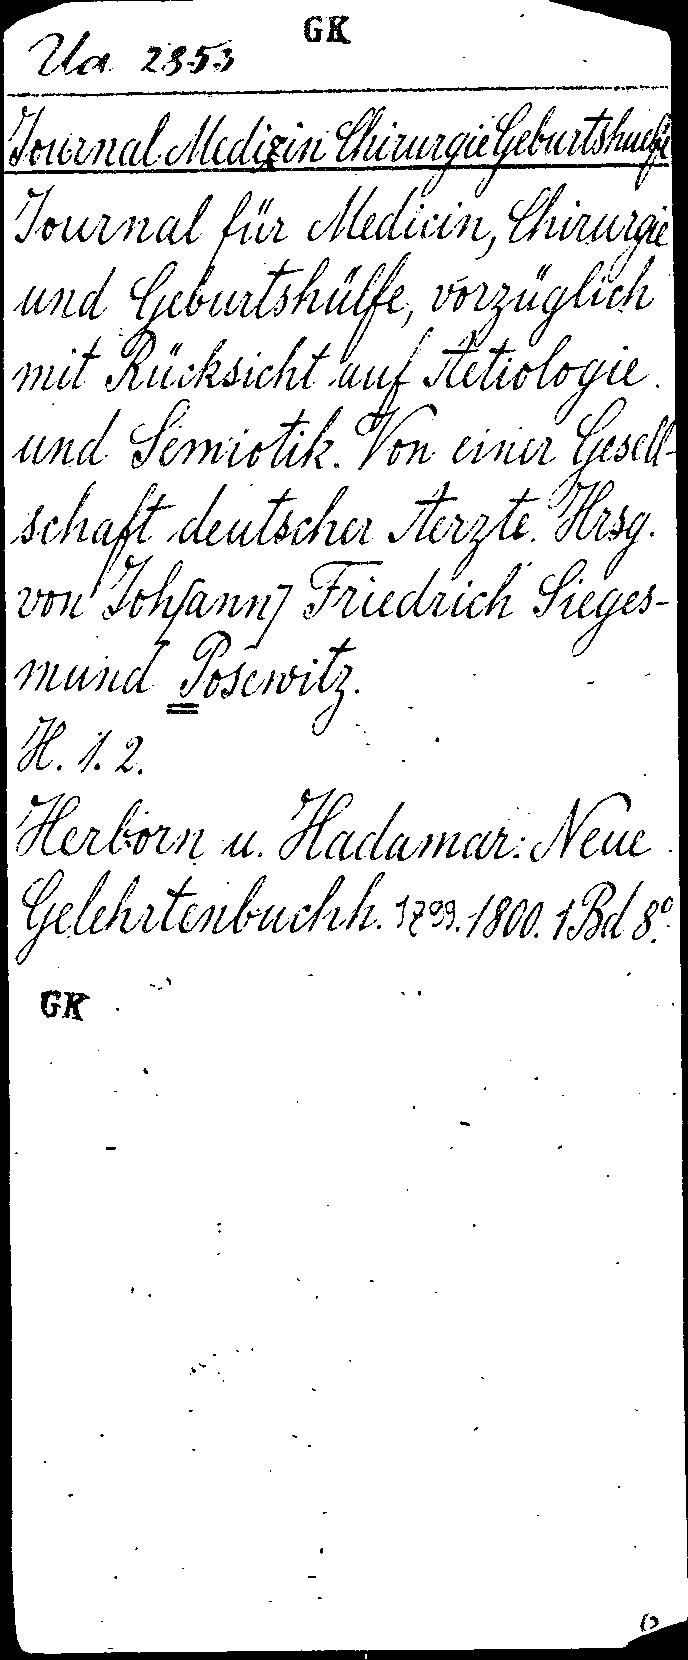 GK
Ua 2853
Journal Medizin Chirurgie Geburtshuelfe
Journal für Medicin, Chirurgie
und Geburtshülfe, vorzüglich
mit Rücksicht auf Aetiologie
und Semiotik. Von einer Gesell-
schaft deutscher Aerzte. Hrsg.
von Joh[ann] Friedrich Sieges-
mund Posewitz.
H. 1. 2.
Herborn u. Hadamar: Neue
Gelehrtenbuchh. 1799. 1800. 1 Bd 8°.
GK